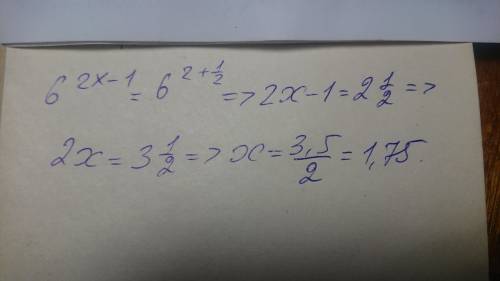 6^{2x-1} = 6^{2+\frac{1}{2}} => 2x-1 = 2\frac{1}{2} =>
2x = 3\frac{1}{2} => x = \frac{3,5}{2} = 1,75.